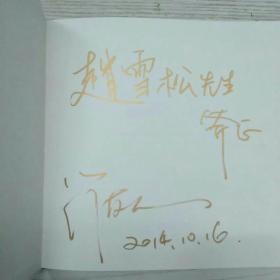 趙雪松先生
斧正
2014.10.16.